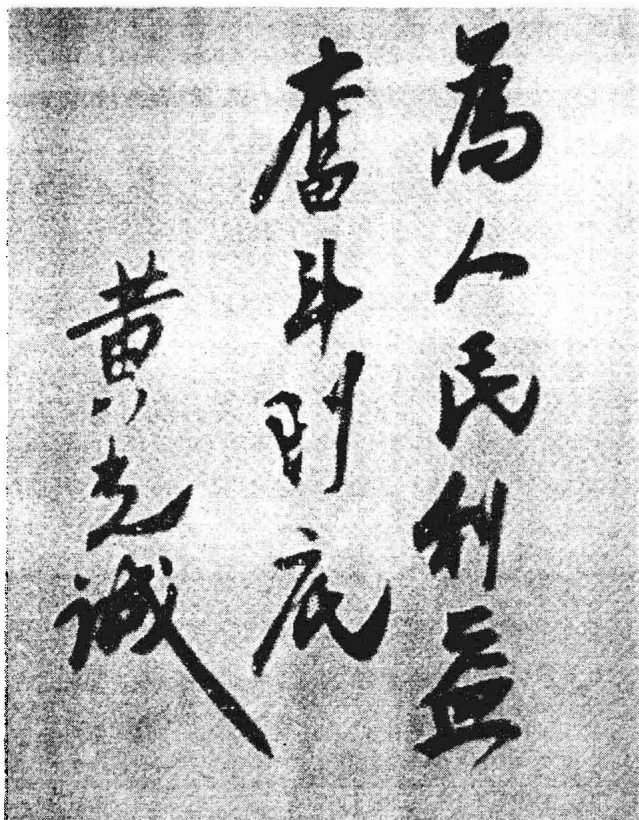 為人民利益
奋斗到底
黄克诚